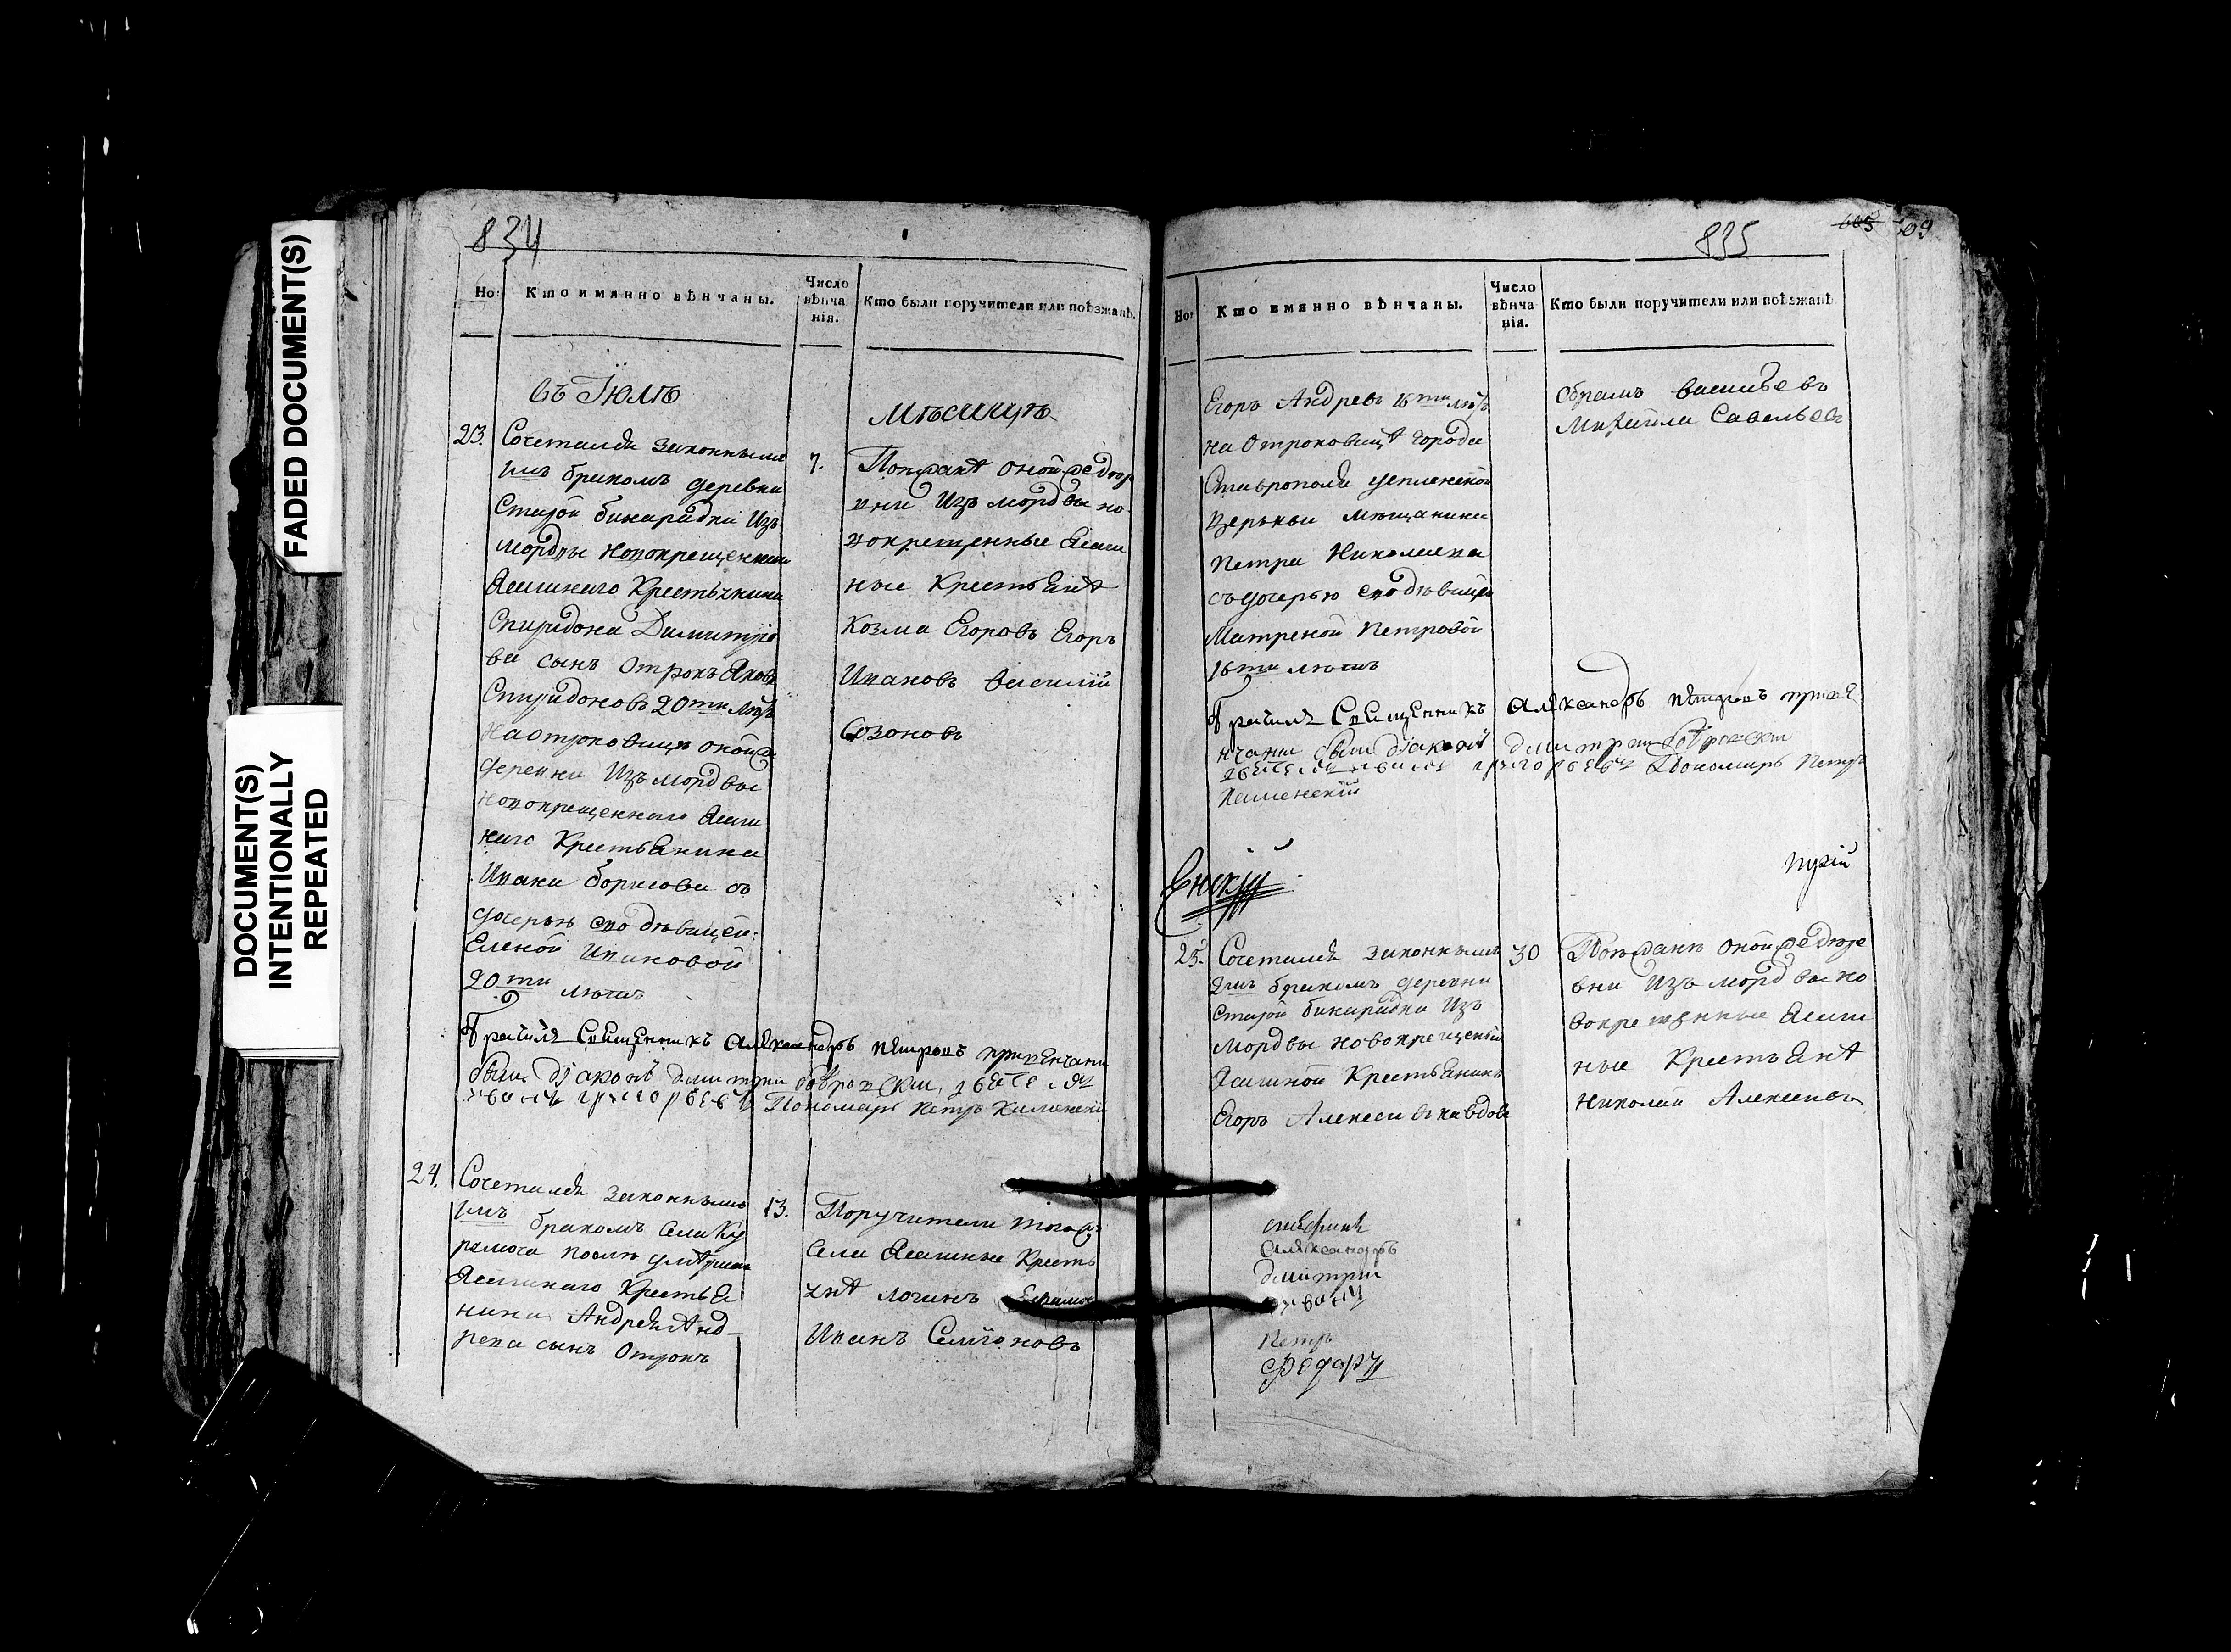 FADED DOCUMENT(S)
DOCUMENT(S)
INTENTIONALLY
REPEATED
834
Но: Кто имянно вѣнчаны. Число вѣнчанія. Кто были поручители или поѣзжанѣ.
въ Іюлѣ
Мѣсицѣ
23. Сочетался законнымъ
1мъ бракомъ деревни
Старой бинарадки Изъ
мордвы новокрещеннаго
Ясашнаго Крестьянина
Спиридона Димитріе
ва сынъ отрокъ Яковъ
Спиридоновъ 20ти лѣтъ
на отроковицѣ оной же
деревни Изъ мордвы
новокрещеннаго Ясаш
наго Крестьянина
Ивана борисова съ
дочерью
Еленой Ивановой
20ти лѣтъ
7. Поезжанѣ оной же дере
вни Изъ мордвы но
вокрещенные Ясаш
ные Крестьянѣ
Козма Егоровъ Егоръ
Ивановъ Василій
Созоновъ
бралъ Священникъ Александръ петровъ привенчани
были діаконъ дмитри
иванъ григорьевъ Пономарь Петръ Каменскій
24. Сочетался законнымъ
1мъ бракомъ села Ку
румоча после умершаго
Ясашнаго Крестья
нина Андрея Анд-
реева сынъ Отрокъ
13. Поручители тогожъ
села Ясашные Кресть
янѣ логинъ
Иванъ Семіоновъ
835
605 09
Но: Кто имянно вѣнчаны. Число вѣнчанія. Кто были поручители или поѣзжанѣ
Егоръ Андревъ 16ти лѣтъ
на Отроковицѣ города
Ставрополя успленской
Церькви мещанина
Петра Николаева
съ дочерью
Матреной Петровой
16ти лѣтъ
Абрамъ васильевъ
Михаила Савельевъ
бралъ Священникъ Александръ петровъ приве
нчани были діаконъ дмитри
иванъ григорьевъ Пономарь Петръ
Каменскій
25. Сочетался законнымъ
2мъ бракомъ деревни
старой бинарадки Изъ
мордвы новокрещеный
Ясашной Крестьянинъ
Егоръ Алексеевъ вдовъ
30 Поезжанѣ оной же дере
вни Изъ мордвы но
вокрещенные Ясаш
ные Крестьянѣ
Николай Алексеевъ
Александръ
дмитри
иванъ
Петръ
Федоръ